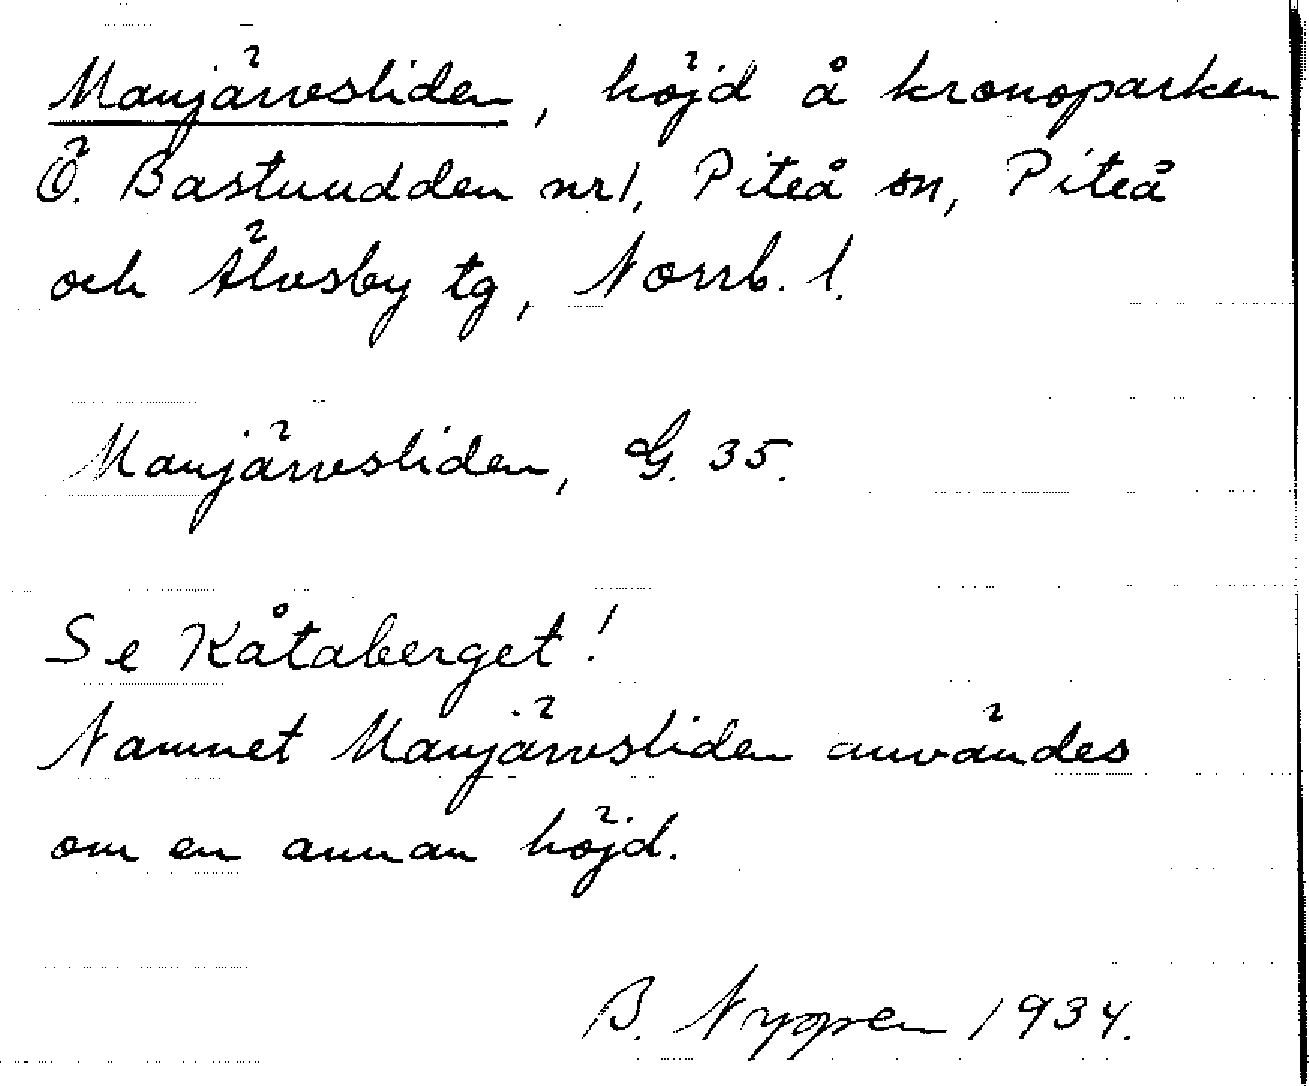 Manjärvesliden, höjd å kronoparken
Ö. Bastuudden nr 1, Piteå sn, Piteå
och Älvsby tg, Norrb. l.
Manjärvesliden, G. 35.
Se Kåtaberget!
Namnet Manjärvsliden användes
om en annan höjd.
B. 1934.